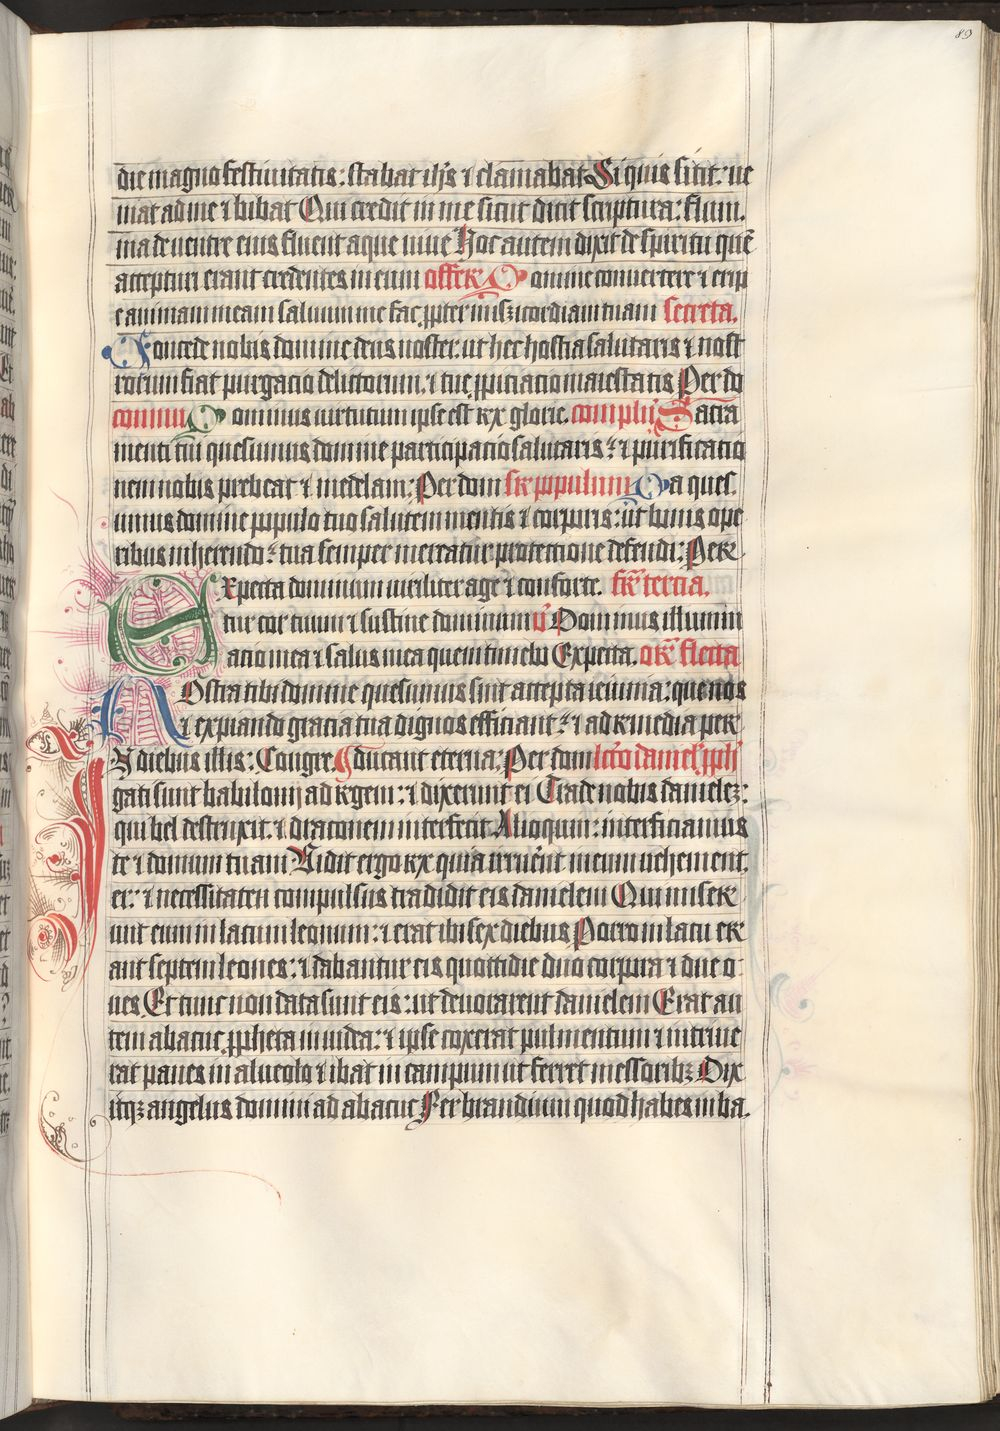 89
die magno festiuitatis: stabat ihs ⁊ clamabat Si quis sitit: ue
niat ad me ⁊ bibat Qui credit in me sicut dicit scriptura: flum.
ina de uentre eius fluent aque uiue Hoc autem dixit de spiritu quē
accepturi erant credentes in eum offer D omine conuertere ⁊ erip
e animam meam saluum me fac ꝓpter misericordiam tuam secreta.
Concede nobis domine deus noster. ut hec hostia salutaris ⁊ nost
rorum fiat purgacio delictorum. ⁊ tue ꝓpiciacio maiestatis Per do
commu D ominus uirtutum ipse est rex glorie. complū Sacra
menti tui quesumus domine participacio salutaris: ⁊ ⁊ purificatio
nem nobis prebeat ⁊ medelam: Per dom sr populum Da ques.
umus domine populo tuo salutem mentis ⁊ corporis: ut bonis ope
ribus inherendo: tua semper mereatur protectione defendi: Per
Expecta dominum uiriliter age ⁊ conforte. fr tercia.
tur cor tuum ⁊ sustine dominum ū Dominus illumin
acio mea ⁊ salus mea quem timebo Expecta. or flecta
Nostra tibi domine quesumus sint accepta ieiunia: que nos
⁊ expiando gracia tua dignos efficiant: ⁊ ad remedia per
In diebus illis: Congre ducant eterna: Per dom lcō daniel ꝓph
gati sunt babilonij ad regem: ⁊ dixerunt ei Trade nobis danielez:
qui bel destruxit. ⁊ draconem interfecit Alioquin: interficiamus
te ⁊ domum tuam Vidit ergo rex quia irruērt in eum uehement.
er: ⁊ necessitate compulsus tradidit eis danielem Qui miser
unt eum in lacum leonum: ⁊ erat ibi sex diebus Porro in lacu er
ant septem leones: ⁊ dabantur eis quottidie duo corpora ⁊ due o
ues Et tunc non data sunt eis: ut deuorarent danielem Erat au
tem abacuc ꝓpheta in iudea: ⁊ ipse coxerat pulmentum ⁊ intriue
rat panes in alueolo ⁊ ibat in campum ut ferret messoribꝫ Dix
itqꝫ angelus domini ad abacuc Fer brandium quod habes in ba.